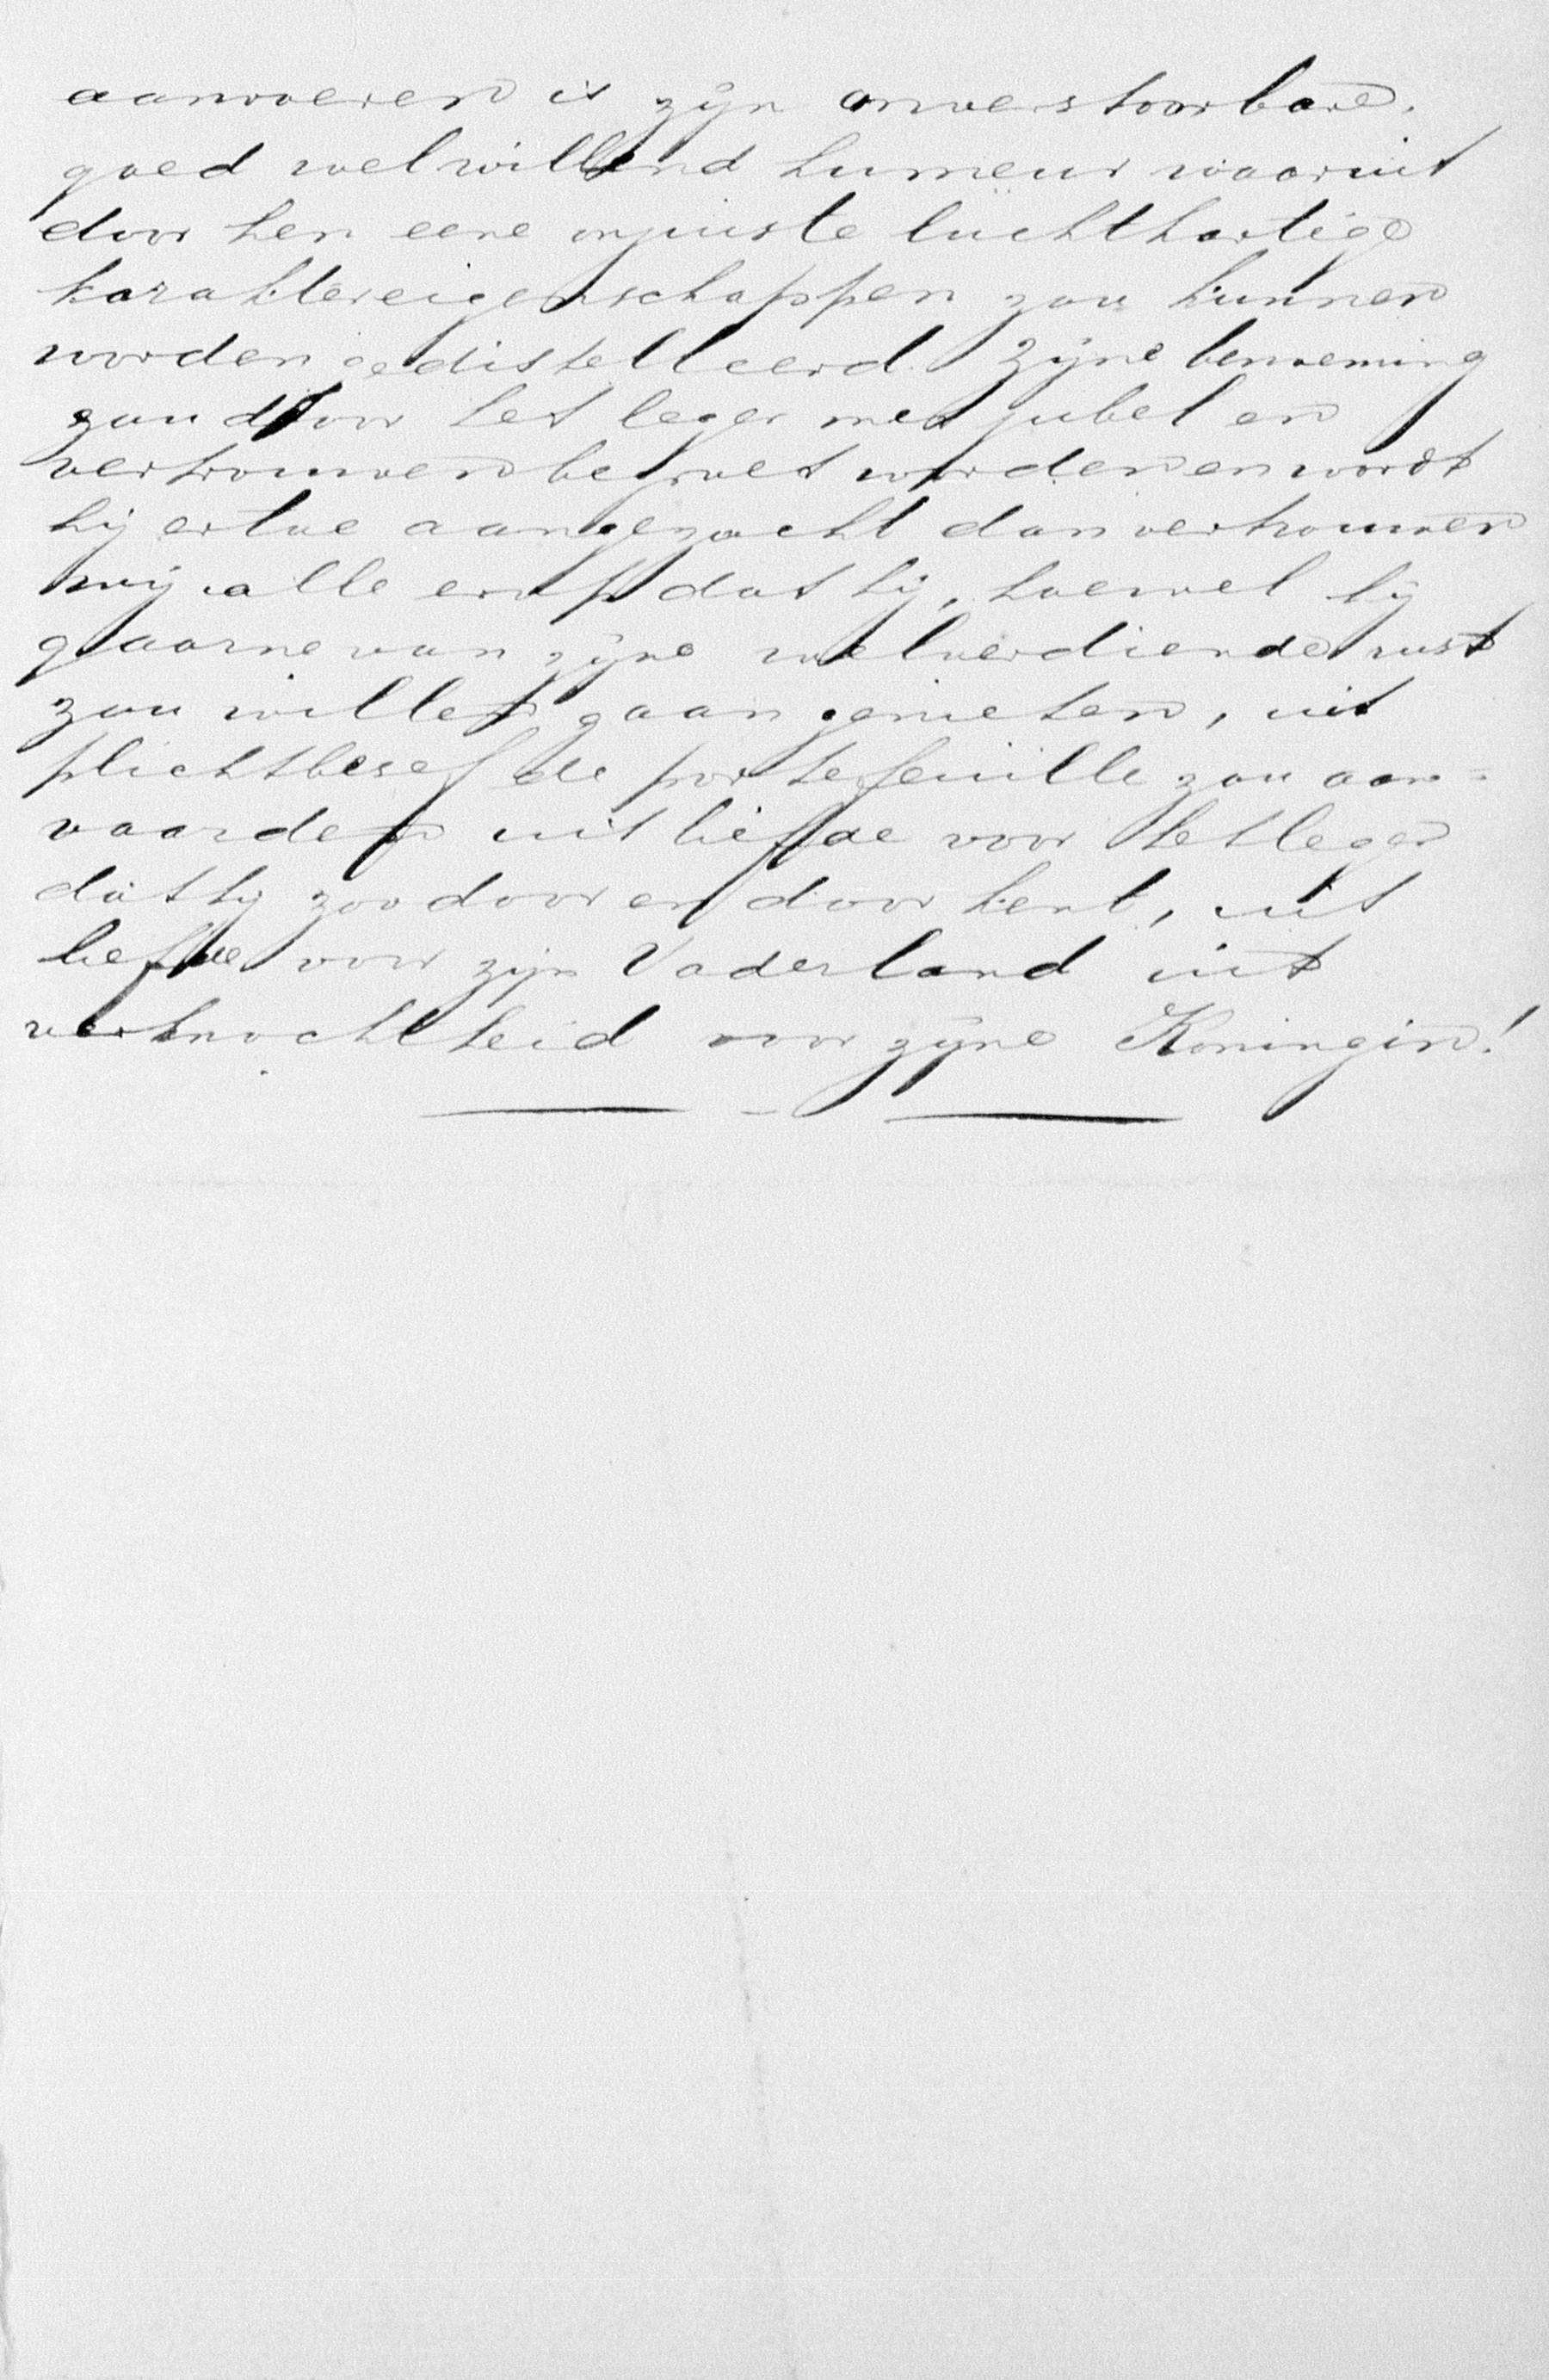 aanvoeren is zijn onverstoorbare.
goed welwillend humeur waaruit
door hen eene onjuiste luchthartige
karaktereigenschappen zou kunnen
worden gedistelleerd. Zijne benoeming
zou door het leger met jubel en
vertrouwen begroet worden en wordt
hij ertoe aangezocht dan vertrouwen
wij alle erop dat hij, hoewel hij
gaarne van zijne welverdiende rust
zou willen gaan genieten, uit
plichtbesef de portefeuille zou aan=
vaarden uit liefde voor het leger
dat hij zoo door en door kent, uit
liefde voor zijn Vaderland uit
verknochtheid voor zijne Koningin!